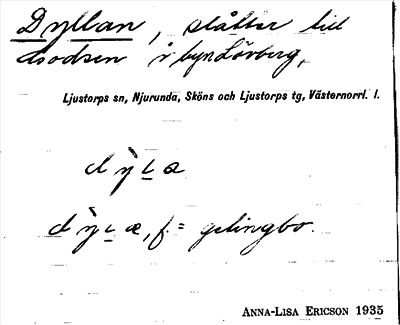 Dyllan, slåtter till
i byn Lövberg,
Ljustorps sn, Njurunda, Sköns och Ljustorps tg, Västernorrl. l.
d y̔ L a
d y̔ L æ, f. = getingbo.
ANNA-LISA ERICSON 1935